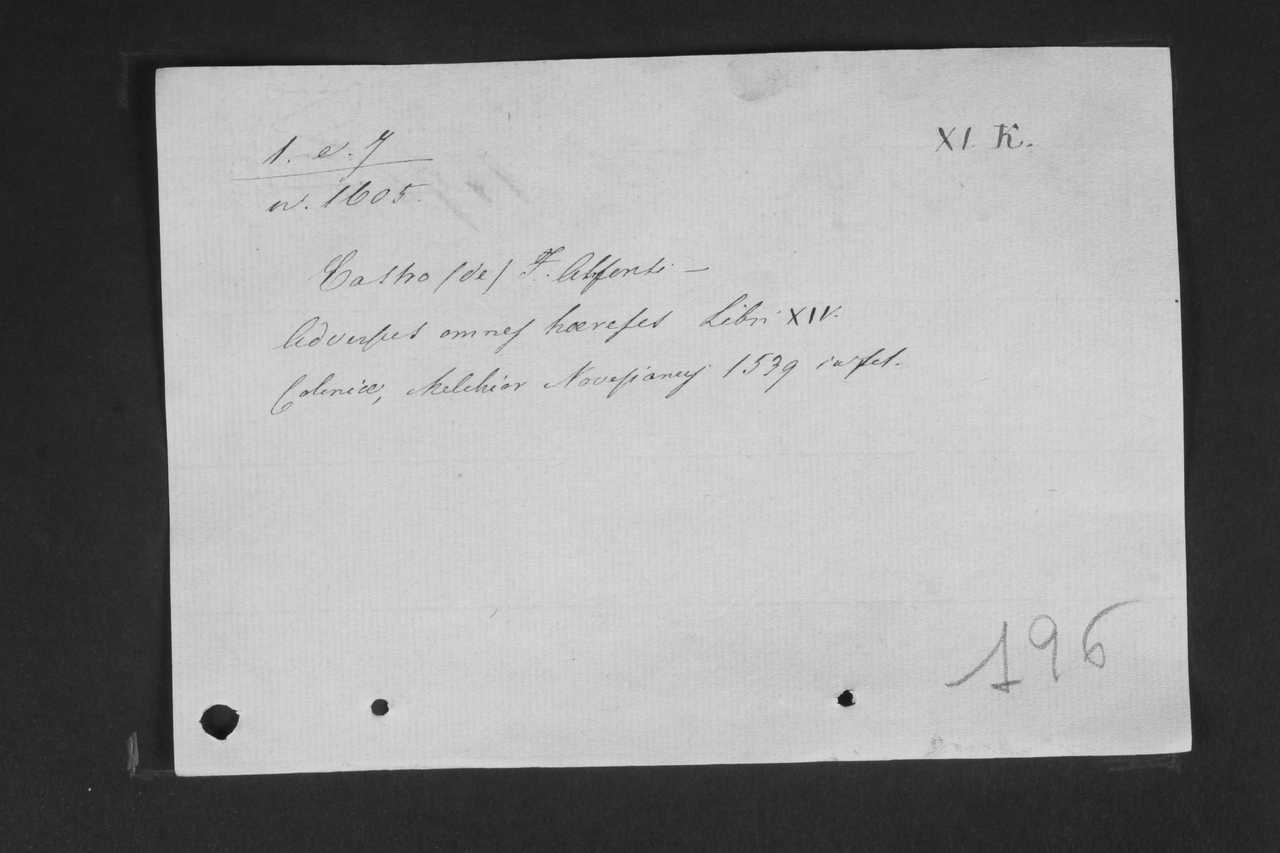 1. e. 7
XI. K.
w. 1605.
Castro (de) F. Alfonsi —
Adversus omnes hæreses Libri XIV.
Coloniæ, Melchior Novesianus 1539 in fol.
196